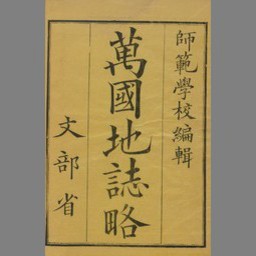 師範學校編輯
萬國地誌略
文部省